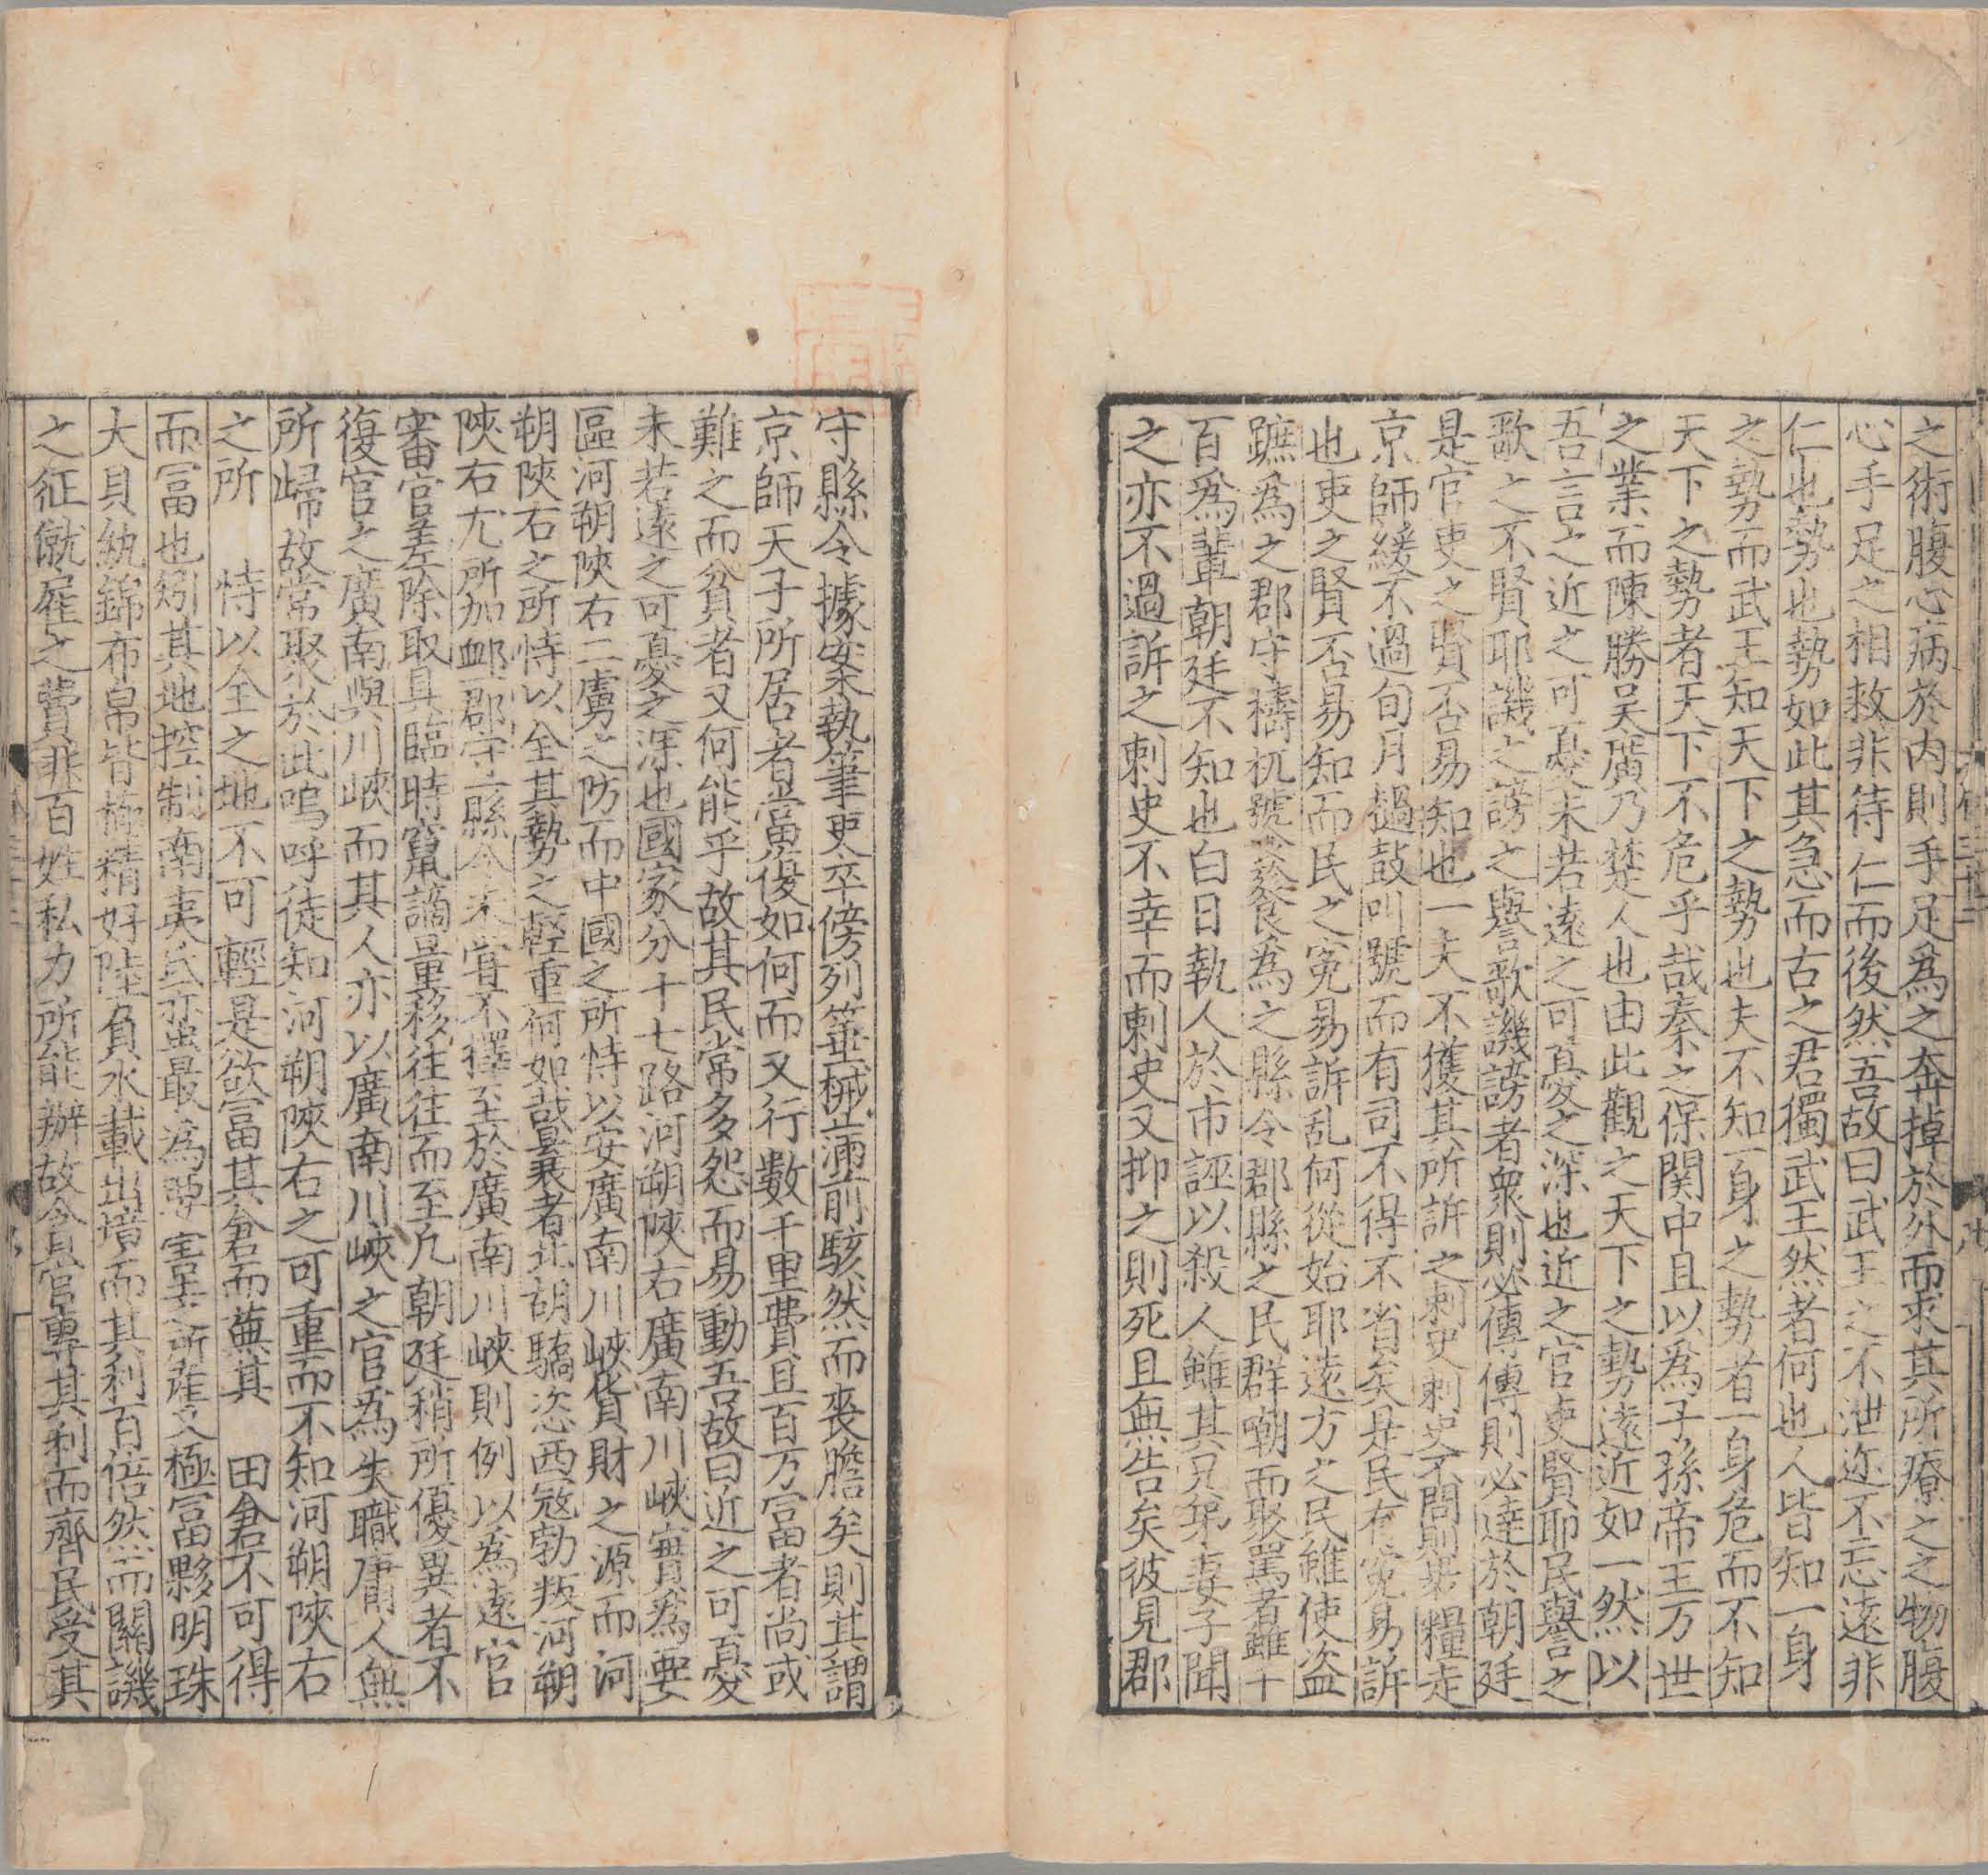 之術腹心病於内則手足爲之奔掉於外而求其所療之之物腹
心手足之相救非待仁而後然吾故曰武王之不泄迩不忘遠非
仁也勢也勢如此其急而古之君獨武王然者何也人皆知一身
之勢而武王知天下之勢也夫不知一身之勢者一身危而不知
天下之勢者天下不危乎哉秦之保関中且以為子孫帝王万世
之業而陳勝吴廣乃楚人也由此觀之天下之勢遠近如一然以
吾言之近之可憂未若遠之可憂之深也近之官吏賢耶民譽之
歌之不賢耶譏之謗之譽歌譏謗者衆則必傳傳則必達於朝廷
是官吏之賢否易知也一夫不獲其所訴之刺史刺史不問則裹糧走
京師緩不過旬月撾鼓叫號而有司不得不省矣是民有寃易訴
也吏之賢否易知而民之寃易訴乱何從始耶遠方之民雖使盗
蹠爲之郡守檮杌饕餮為之縣令郡縣之民群嘲而聚罵者雖千
百爲輩朝廷不知也白日執人於市誣以殺人雖其兄弟妻子聞
之亦不過訴之刺史不幸而刺史又抑之則死且無告矣彼見郡
守縣令據案執筆吏卒傍列箠械滿前駭然而喪膽矣則其謂
京師天子所居者當㒷復如何而又行數千里費且百万富者尚或
難之而貧者又何能乎故其民常多怨而易動吾故曰近之可憂
未若遠之可憂之深也國家分十七路河朔陜右廣南川峽實為要
區河朔陜右二虜之防而中國之所恃以安廣南川峽貨財之源而河
朔陜右之所恃以全其勢之輕重何如哉曩者北胡驕恣西冦勃叛河朔
陜右尤所加卹一郡守一縣令未嘗不擇至於廣南川峽則例以為遠官
審官差除取具臨時竄謫量移往往而至凡朝廷稍所優異者不
復官之廣南與川峽而其人亦以廣南川峽之官為失職庸人無
所歸故常聚於此嗚呼徒知河朔陜右之可重而不知河朔陜右
之所　恃以全之地不可輕是欲富其倉而蕪其　田倉不可得
而冨也矧其地控制南夷氐蛮最為要害土之所產又極冨夥明珠
大貝紈錦布帛皆極精好陸負水載出境而其利百倍然而關譏
之征僦雇之費非百姓私力所能辦故貪官專其利而齊民受其